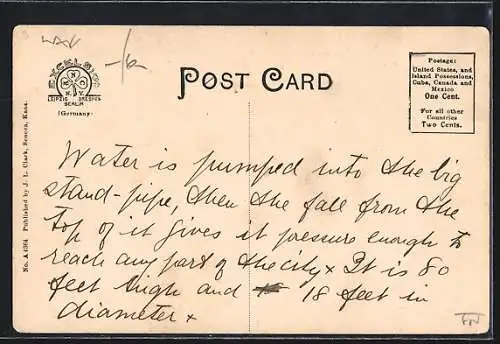 POST CARD
EXCELSIOR
LEIPZIG DRESDEN
BERLIN
(Germany)
Postage:
United States, and
Island Possessions,
Cuba, Canada and
Mexico
One Cent.
For all other
Countries
Two Cents.
No. A 4264 Published by J. L. Clark, Seneca, Kans.
Water is pumped into the big
stand-pipe, then the fall from the
top of it gives it pressure enough to
reach any part of the city x It is 80
feet high and 18 feet in
diameter x